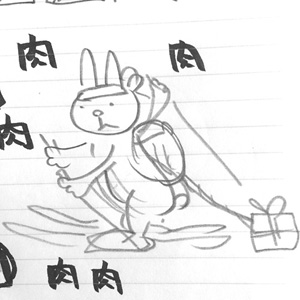 肉 肉
肉
肉肉